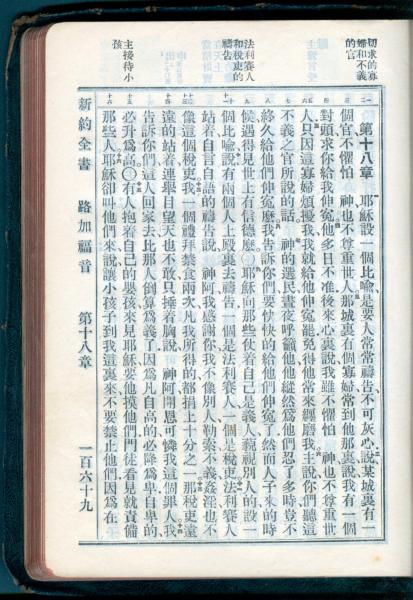 切求的寡
婦和不義
的官
法利賽人
和稅吏的
禱告
主接待小
孩
第十八章 耶穌設一個比喻是要人常常禱告不可灰心說某城裏有一
個官不懼怕 神也不尊重世人那城裏有個寡婦常到他那裏說我有一個
對頭求你給我伸冤他多日不准後來心裏說我雖不懼怕 神也不尊重世
人只因這寡婦煩擾我我就給他伸冤罷免得他常來纏磨我主說你們聽這
不義之官所說的話 神的選民晝夜呼籲他他縱然爲他們忍了多時豈不
終久給他們伸冤麼我告訴你們要快快的給他們伸冤了然而人子來的時
候遇得見世上有信德麼〇耶穌向那些仗着自己是義人藐視別人的設一
個比喻說有兩個人上殿裏去禱告一個是法利賽人一個是稅吏法利賽人
站着自言自語的禱告說 神阿我感謝你我不像別人勒索不義姦淫也不
像這個稅吏我一個禮拜禁食兩次凡我所得的都捐上十分之一那稅吏遠
遠的站着連舉目望天也不敢只捶着胸說 神阿開恩可憐我這個罪人我
告訴你們這人回家去比那人倒算爲義了因爲凡自高的必降爲卑自卑的
必升爲高〇有人抱着自己的嬰孩來見耶穌要他摸他們門徒看見就責備
那些人耶穌卻叫他們來說讓小孩子到我這裏來不要禁止他們因爲在
新約全書 路加福音 第十八章 一百六十九